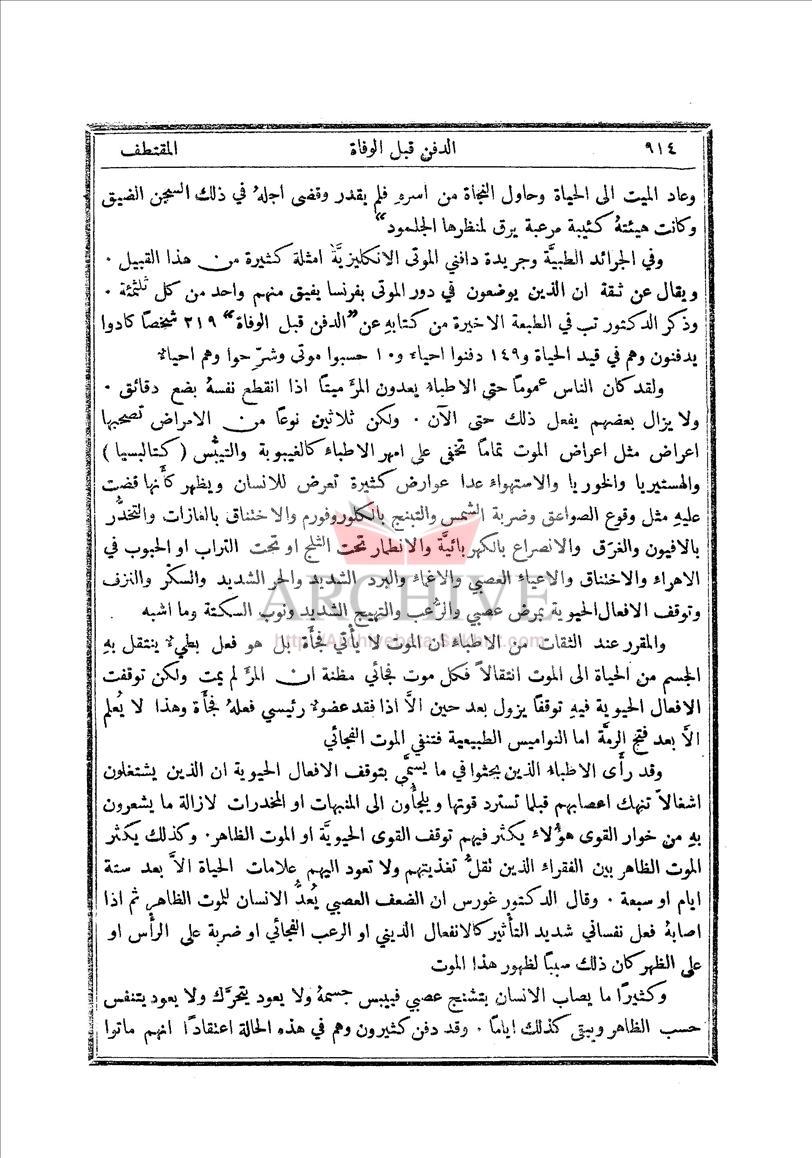 ٩١٤ الدفن قبل الوفاة المقتطف
وعاد الميت الى الحياة وحاول النجاة من اسرهِ فلم يقدر وقضى اجلهُ في ذلك السجن الضيق
وكانت هيئتهُ كئيبة مرعبة يرق لمنظرها الجلمود“
وفي الجرائد الطبيَّة وجريدة دافني الموتى الانكليزيَّة امثلة كثيرة من هذا القبيل .
ويقال عن ثقة ان الذين يوضعون في دور الموتى بفرنسا يفيق منهم واحد من كل ثلثمئة .
وذكر الدكتور تب في الطبعة الاخيرة من كتابهِ عن ”الدفن قبل الوفاة“ ٢١٩ شخصًا كادوا
يدفنون وهم في قيد الحياة و١٤٩ دفنوا احياء و١٠ حسبوا موتى وشرّحوا وهم احياء
ولقد كان الناس عمومًا حتى الاطباء يعدون المرءَ ميتًا اذا انقطع نفسهُ بضع دقائق .
ولا يزال بعضهم يفعل ذلك حتى الآن . ولكن ثلاثين نوعًا من الامراض تصحبها
اعراض مثل اعراض الموت تمامًا تخفى على امهر الاطباء كالغيبوبة والتيبُّس (كتاليسيا)
والهستيريا والخوريا والاستهواء عدا عوارض كثيرة تعرض للانسان ويظهر كأنها قضت
عليهِ مثل وقوع الصواعق وضربة الشمس والتبنج بالكلوروفورم والاختناق بالغازات والتخدُّر
بالافيون والغرَق والانصراع بالكهربائيَّة والانطمار تحت الثلج او تحت التراب او الحبوب في
الاهراء والاختناق والاعياء العصبي والاغماء والبرد الشديد والحر الشديد والسكْر والنزف
وتوقف الافعال الحيوية بمرض عصبي والرُّعب والتهيج الشديد ونوب السكتة وما اشبه .
والمقرر عند الثقات من الاطباء ان الموت لا يأتي فجأة بل هو فعل بطيء ينتقل بهِ
الجسم من الحياة الى الموت انتقالاً فكل موت فجائي مظنة ان المرءَ لم يمت ولكن توقفت
الافعال الحيوية فيهِ توقفًا يزول بعد حين الاَّ اذا فقد عضو رئيسي فعلهُ فجأة وهذا لا يُعلم
الاَّ بعد فتح الرمَّة اما النواميس الطبيعية فتنفي الموت الفجائي
وقد رأَى الاطباء الذين بحثوا في ما يسمَّى بتوقف الافعال الحيوية ان الذين يشتغلون
اشغالاً تنهك اعصابهم قبلما تسترد قوتها ويلجأُون الى المنبهات او المخدرات لازالة ما يشعرون
بهِ من خوار القوى هؤلاء يكثر فيهم توقف القوى الحيويَّة او الموت الظاهر. وكذلك يكثر
الموت الظاهر بين الفقراء الذين تقلُّ تغذيتهم ولا تعود اليهم علامات الحياة الاَّ بعد ستة
ايام او سبعة . وقال الدكتور غورس ان الضعف العصبي يُعدُّ الانسان للموت الظاهر ثم اذا
اصابهُ فعل نفساني شديد التأثير كالانفعال الديني او الرعب الفجائي او ضربة على الرأس او
على الظهر كان ذلك سببًا لظهور هذا الموت
وكثيرًا ما يصاب الانسان بتشنج عصبي فييبس جسمهُ ولا يعود يتحرَّك ولا يعود يتنفس
حسب الظاهر ويبقى كذلك ايامًا . وقد دفن كثيرون وهم في هذه الحالة اعتقادًا انهم ماتوا
ARCHIVE
http://Archivebeta.Sakhrit.com